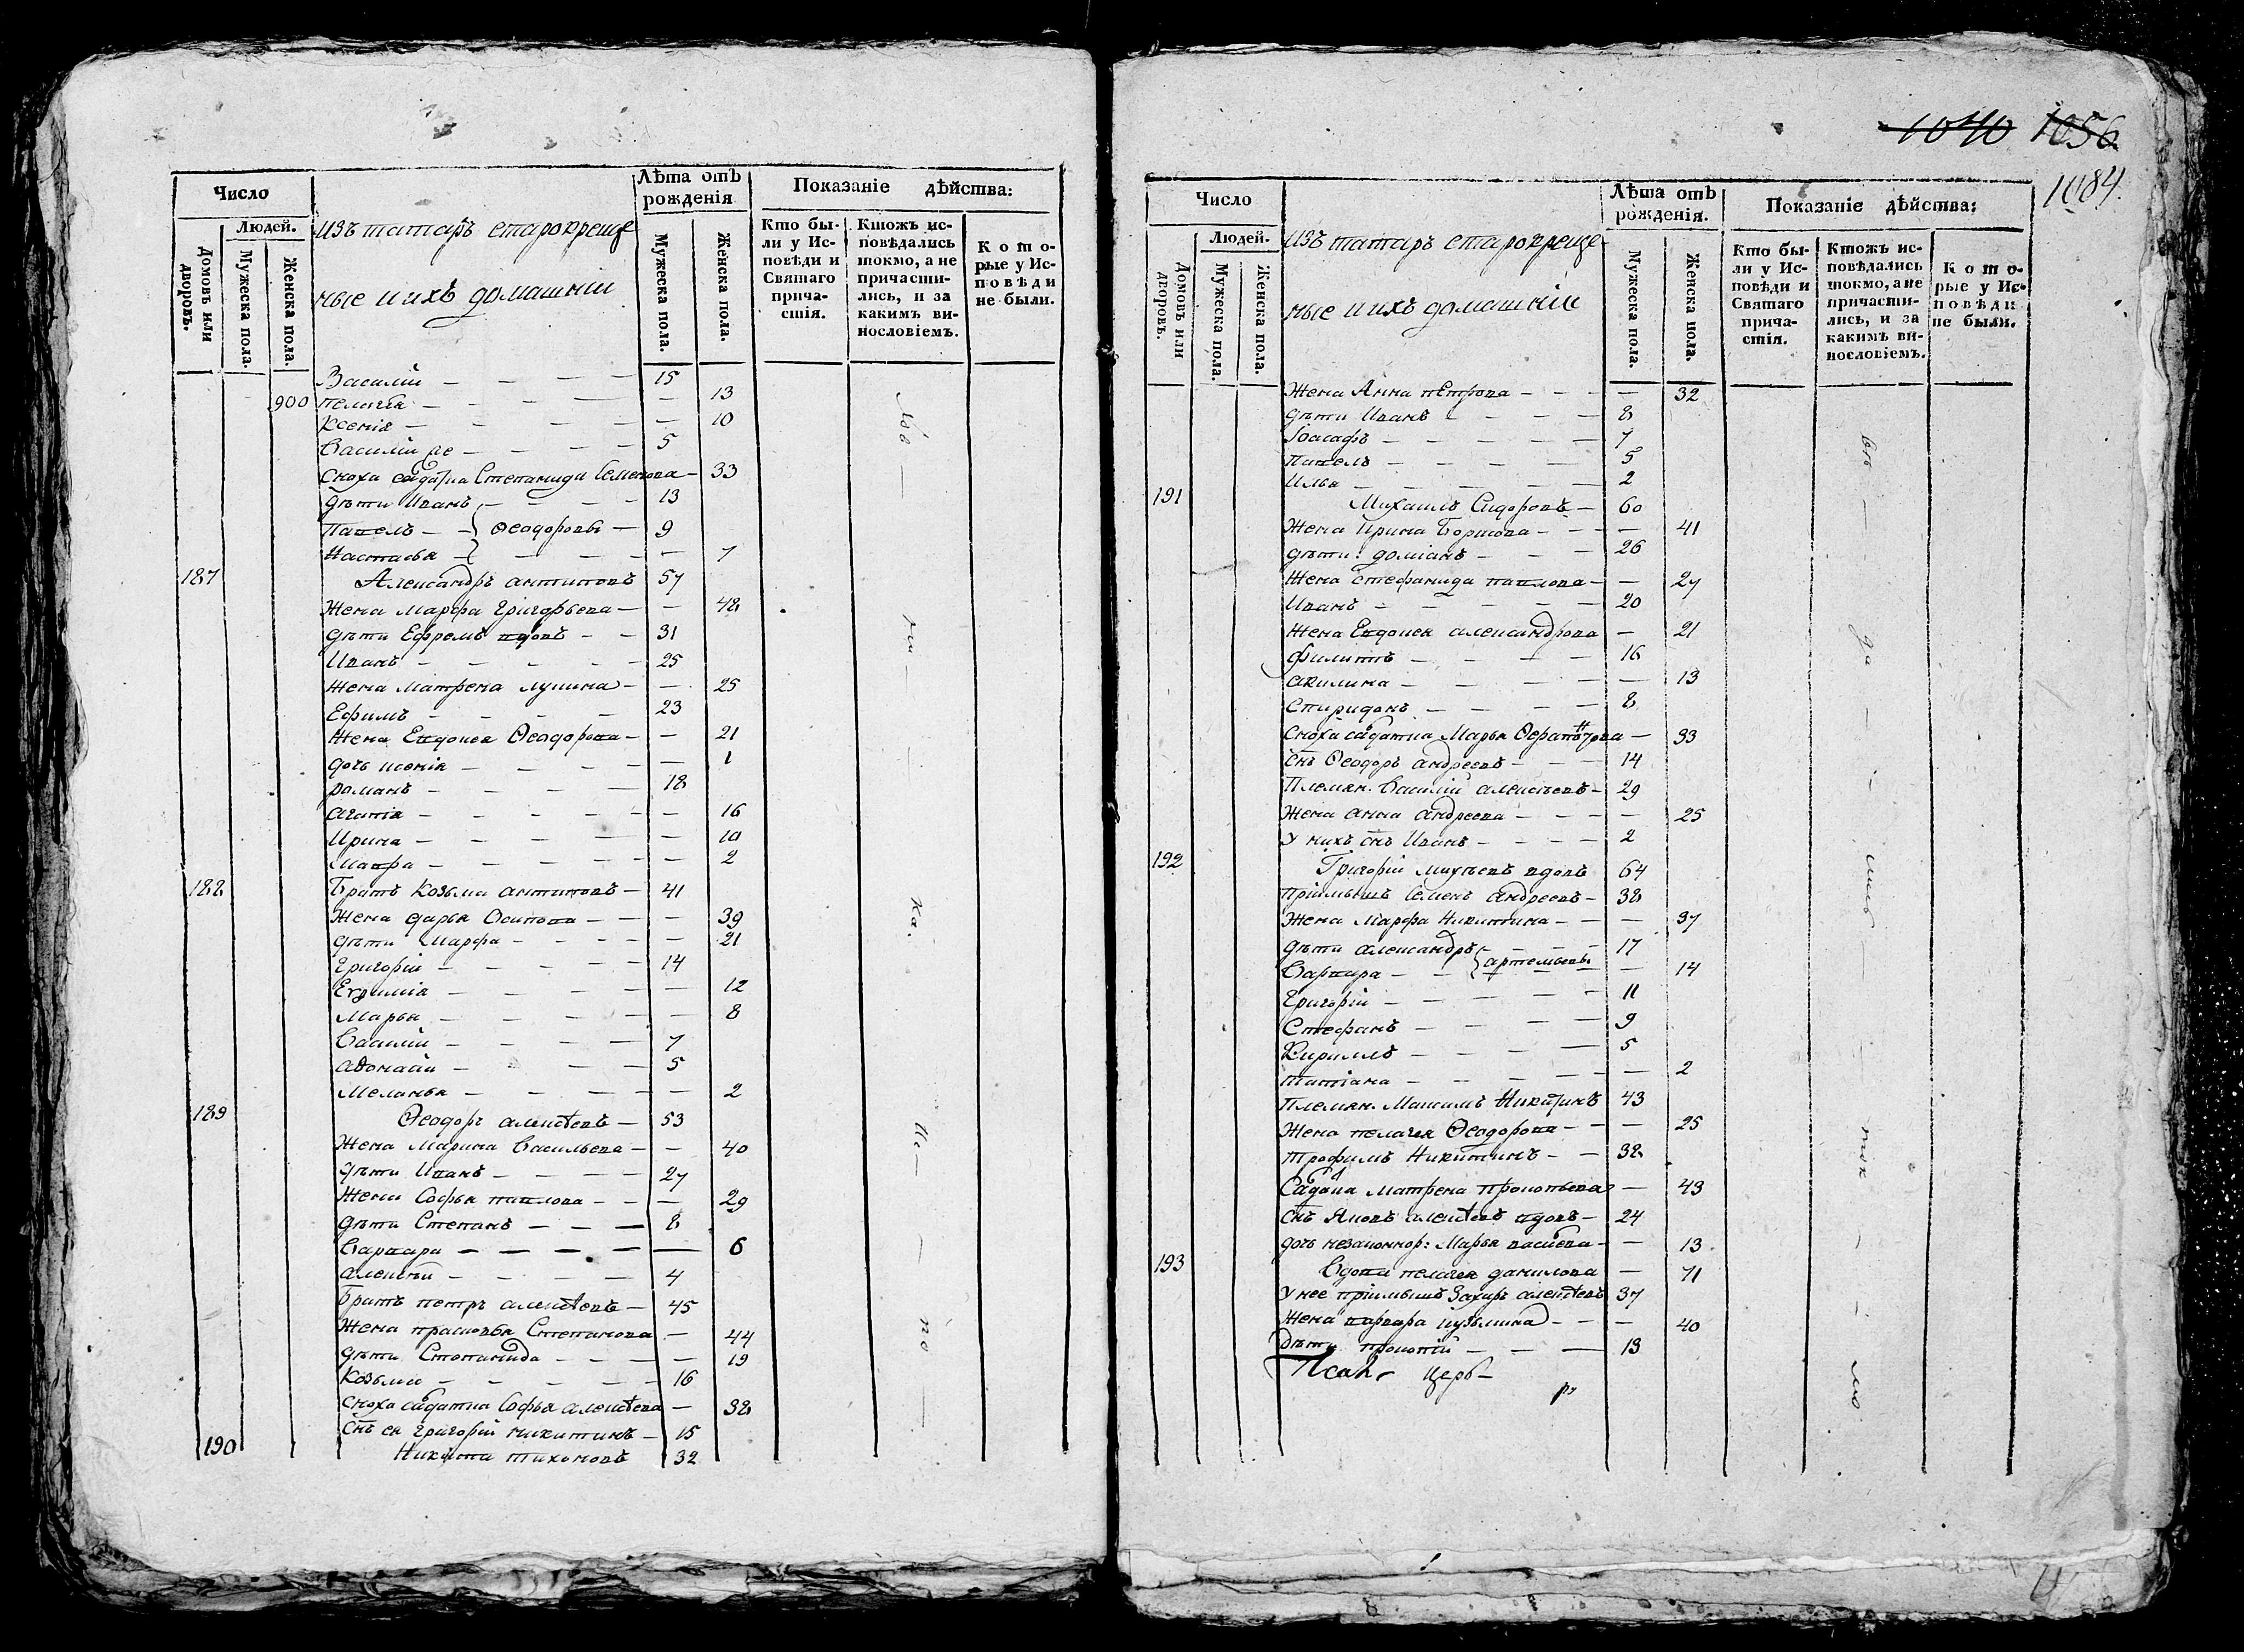 Число
Людей.
Домовъ или дворовъ.
Мужеска пола.
Женска пола.
изъ татаръ старокреще
ные и ихъ домашнiи
Лѣта отъ рожденія
Мужеска пола.
Женска пола.
Показаніе дѣйства:
Кто бы-
ли у Ис-
повѣди и
Святаго
прича-
стія.
Ктожъ ис-
повѣдались
токмо, а не
причасти-
лись, и за
какимъ ви-
нословіемъ.
К о т о-
рые у Ис-
п о в ѣ д и
не были.
Василiй — 15
900 Пелагея — 13
Ксенiя — 10
Василiй же — 5
Сноха салдатка Степанида Семенова — 33
Дѣти Иванъ — 13
Павелъ — Ѳеодоровы — 9
Настасья — 7
187 Александръ Антиповъ 57
Жена Марфа Григорьева — 48
дѣти Ефремъ вдовъ — 31
Иванъ — 25
Жена Матрена Лукина — 25
Ефимъ — 23
Жена Евдокея Ѳеодорова — 21
дочь Ксенiя — 1
Романъ — 18
Агапiя — 16
Ирина — 10
Мавра — 2
188 Братъ Козьма Антиповъ — 41
Жена Дарья Осипова — 39
дѣти Марфа — 21
Григорiй — 14
Евфимiя — 12
Марья — 8
Василiй — 7
5
Меланья — 2
189 Ѳеодоръ Алексѣевъ — 53
Жена Марина Васильева — 40
дѣти Иванъ — 27
Жена Софья Павлова — 29
дѣти Степанъ — 8
Варвара — 6
Алексѣй — 4
Братъ Петръ Алексѣевъ — 45
Жена Прасковья Степанова — 44
дѣти Степанида — 19
Козьма — 16
Сноха салдатка Софья Алексѣева — 38
Снъ ея Григорiй Никитинъ — 15
190 Никита Тихоновъ 32
1040 1056
1084.
Число
Людей.
Домовъ или дворовъ.
Мужеска пола.
Женска пола.
Изъ татаръ старокреще-
ные и ихъ домашнiе
Лѣта отъ рожденія.
Мужеска пола.
Женска пола.
Показаніе дѣйства:
Кто бы-
ли у Ис-
повѣди и
Святаго
прича-
стія.
Ктожъ ис-
повѣдались
токмо, а не
причасти-
лись, и за
какимъ ви-
нословіемъ.
К о т о-
рые у Ис-
п о в ѣ д и
не были.
Жена Анна Петрова — 32
дѣти Иванъ — 8
Iоасафъ — 7
Павелъ — 5
Илья — 2
191 Михаилъ Сидоровъ — 60
Жена Ирина Борисова — 41
дѣти: Домiанъ — 26
Жена Стефанида Павлова — 27
Иванъ — 20
Жена Евдокея Александрова — 21
Филиппъ — 16
Акилина — 13
Спиридонъ — 8
Сноха салдатка Марья — 33
Снъ Ѳеодоръ Андреевъ — 14
Племян. Василiй Алексѣевъ — 29
Жена Анна Андреева — 25
У нихъ снъ Иванъ — 2
192 Григорiй Михѣевъ вдовъ 64
Прiимышъ Семенъ Андреевъ — 38
Жена Марфа Никитина — 37
дѣти Александръ — 17
Варвара — Артемьевы — 14
Григорiй — 11
Стефанъ — 9
Кириллъ — 5
Татiана — 2
Племян. Максимъ Никитинъ 43
Жена Пелагея Ѳеодорова — 25
Трофимъ Никитинъ — 38
Матрена Прокопьева — 43
Снъ Яковъ Алексѣевъ вдовъ — 24
дочь незаконнор: Марья Васиева — 13
193 Вдова Пелагея Данилова — 71
У нее прiимышъ Захаръ Алексѣевъ 37
Жена Варвара Кузьмина — 40
Дѣти Прокопiй — 13